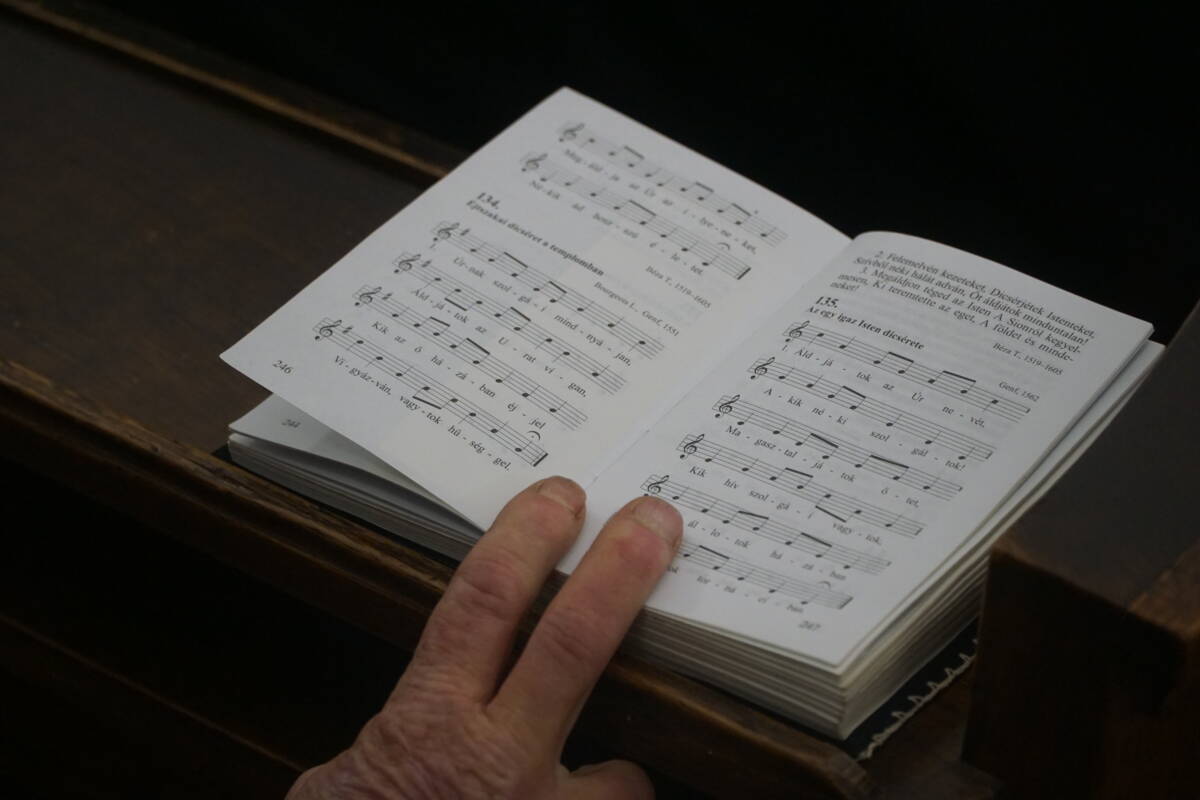 Meg - áld - ja az Úr az i - lye - ne - ket,
Ne - kik ád hosz - szú é - le - tet.
134.
Éjszakai dicséret a templomban
Béza T., 1519–1605
Bourgeois L., Genf, 1551
Úr - nak szol - gá - i mind - nyá - jan,
Áld - já - tok az U - rat ví - gan,
Kik az ő há - zá - ban éj - jel
Vi - gyáz - ván, vagy - tok hű - ség - gel.
246
244
2. Felemelvén kezeteket, Dicsérjétek Istenteket,
Szívből néki hálát adván, Őt áldjátok minduntalan!
3. Megáldjon téged az Isten A Sionról kegyel-
mesen, Ki teremtette az eget, A földet és minde-
neket!
Béza T., 1519–1605
135.
Az egy igaz Isten dicsérete
Genf, 1562
Áld - já - tok az Úr ne - vét,
A - kik né - ki szol - gál - tok!
Ma - gasz - tal - já - tok ő - tet,
Kik hív szol - gá - i vagy - tok,
ál - lo - tok há - zá - ban
tor - ná - ci - ban
247